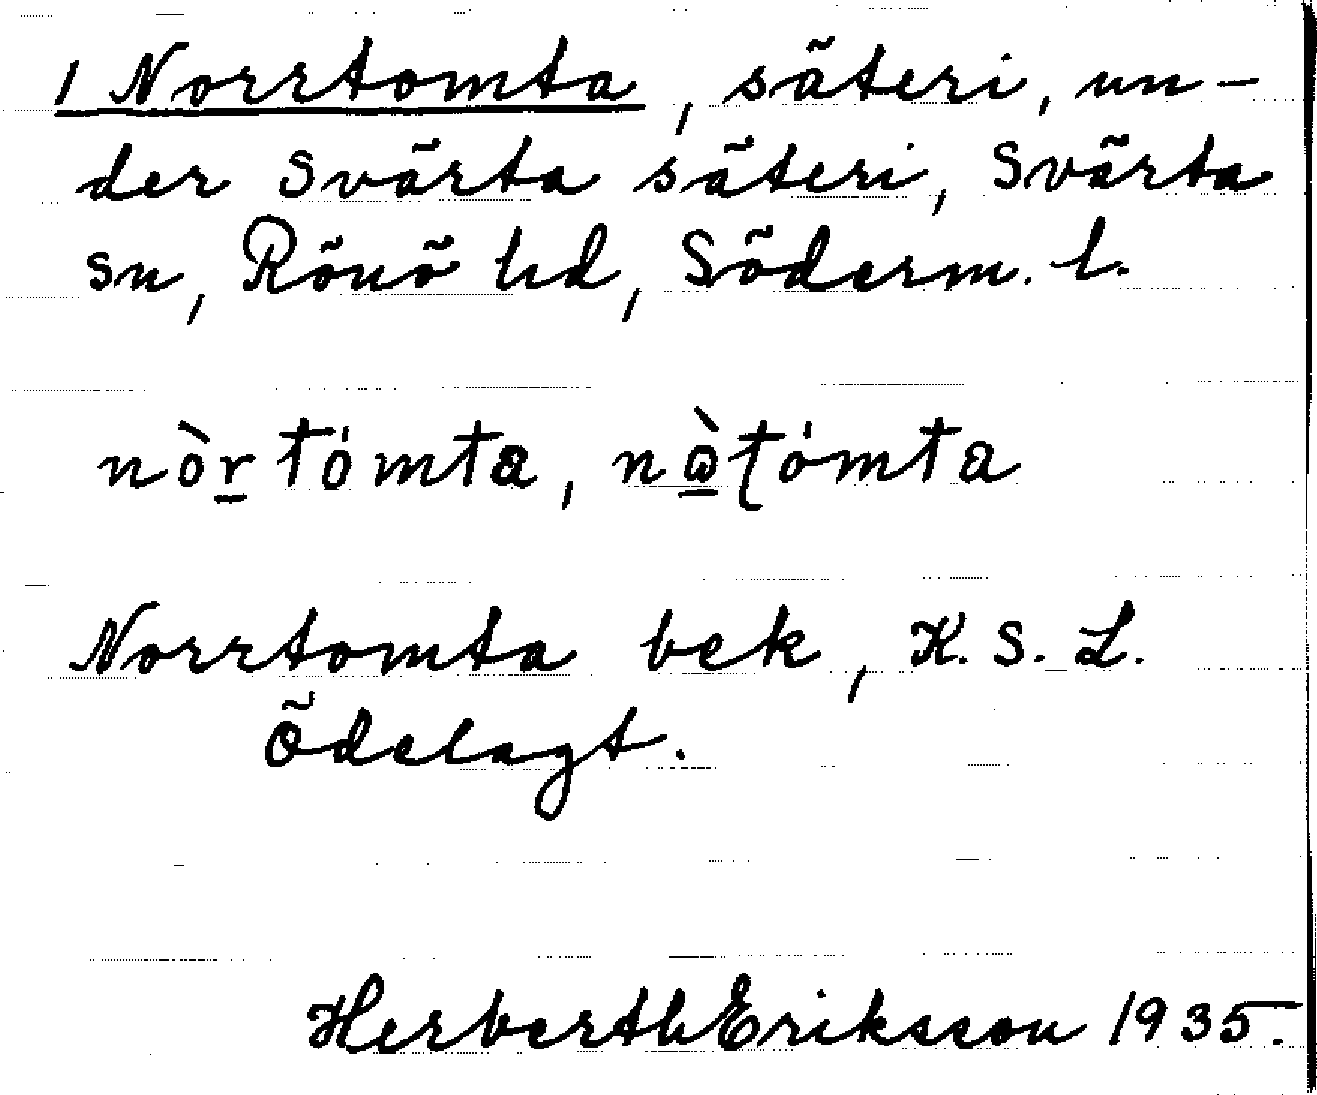 1 Norrtomta, säteri, un-
der Svärta säteri, Svärta
sn, Rönö hd, Söderm. l.
nòr̲tómta, nò̲ʈómta
Norrtomta bek, K. S. L.
Ödelagt.
Herberth Eriksson 1935.